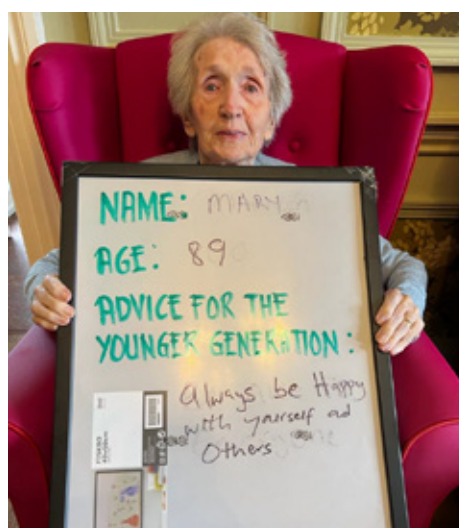 NAME: MARY
AGE: 89
ADVICE FOR THE
YOUNGER GENERATION:
Always be Happy
with yourself ad
Others